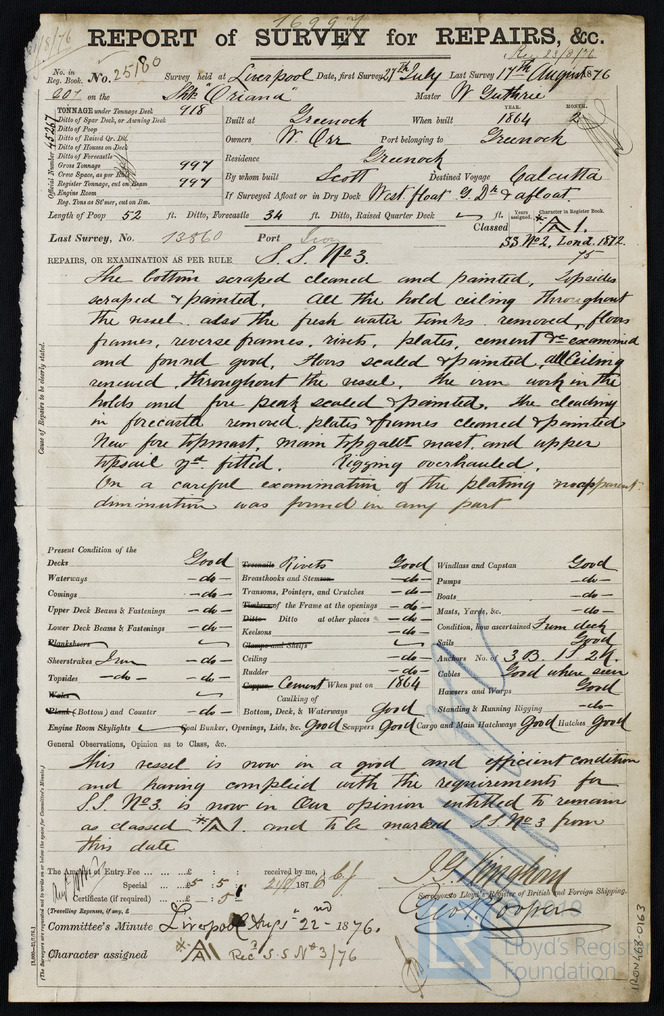 16997
21/8/76
REPORT of SURVEY for REPAIRS, &c.
Rec 23/8/76
No. in Reg. Book. No. 25180 Survey held at Liverpool Date, first Survey 27th July Last Survey 17th August 1876
601 on the Ship "Oriana" Master W Guthrie
TONNAGE under Tonnage Deck 918
Ditto of Spar Deck, or Awning Deck
Ditto of Poop
Ditto of Raised Qr. Dk.
Ditto of Houses on Deck
Ditto of Forecastle
Gross Tonnage 997
Crew Space, as per Rule
Register Tonnage, cut on Beam 997
Engine Room
Reg. Tons as St'mer, cut on Bm.
Official Number 45267
YEAR. MONTH.
Built at Greenock When built 1864 2
Owners W. Orr Port belonging to Greenock
Residence Greenock
By whom built Scott Destined Voyage Calcutta
If Surveyed Afloat or in Dry Dock West float G. Dk & afloat.
Length of Poop 52 ft. Ditto, Forecastle 34 ft. Ditto, Raised Quarter Deck ft.
Years assigned. Character in Register Book.
Classed A 1.
SS No 2. Lond. 1872
75
Last Survey, No. 13860 Port
REPAIRS, OR EXAMINATION AS PER RULE S.S. No 3.
The bottom scraped cleaned and painted, Topsides
scraped & painted. All the hold ceiling throughout
the vessel also the fresh water tanks removed, floors
frames, reverse frames, rivets, plates, cement &c examined
and found good. Floors scaled & painted, all Ceiling
renewed throughout the vessel. The iron work in the
holds and fore peak scaled & painted. The cleading
in forecastle removed plates & frames cleaned & painted
New fore topmast, main topgallt mast, and upper
topsail yd. fitted. Rigging overhauled.
On a careful examination of the plating no apparent
diminution was found in any part
Cause of Repairs to be clearly stated.
Present Condition of the
Decks Good
Waterways do
Comings do
Upper Deck Beams & Fastenings do
Lower Deck Beams & Fastenings do
Planksheers
Sheerstrakes Iron do
Topsides do do
Wales
Plank (Bottom) and Counter do
Treenails Rivets Good
Breasthooks and Stemson do
Transoms, Pointers, and Crutches do
Timbers of the Frame at the openings do
Ditto Ditto at other places do
Keelsons do
Clamps and Shelfs
Ceiling do
Rudder do
Copper Cement When put on 1864
Caulking of
Bottom, Deck, & Waterways Good
Windlass and Capstan Good
Pumps do
Boats do
Masts, Yards, &c. do
Condition, how ascertained From deck
Sails Good
Anchors No. of 3 B. 1 S. 2 K.
Cables Good where seen
Hawsers and Warps Good
Standing & Running Rigging do
Engine Room Skylights Coal Bunker, Openings, Lids, &c. Good Scuppers Good Cargo and Main Hatchways Good Hatches Good
General Observations, Opinion as to Class, &c.
This vessel is now in a good and efficient condition
and having complied with the requirements for
S.S. No 3. is now in our opinion entitled to remain
as classed A 1. and to be marked S.S. No 3 from
this date
The amount of Entry Fee ... £ : : received by me,
Special ... £5 : 5 : 187 6
Certificate (if required) ... : 5
(Travelling Expenses, if any, £ )
Surveyor to Lloyd's Register of British and Foreign Shipping.
Geo. Cooper
Committee's Minute Liverpool Augs 22nd 1876.
Character assigned A 1 Recd S.S No 3/76
(The Surveyors are requested not to write on or below the space for Committee's Minute.)
© 2019
Lloyd's Register
Foundation
IRON468-0163